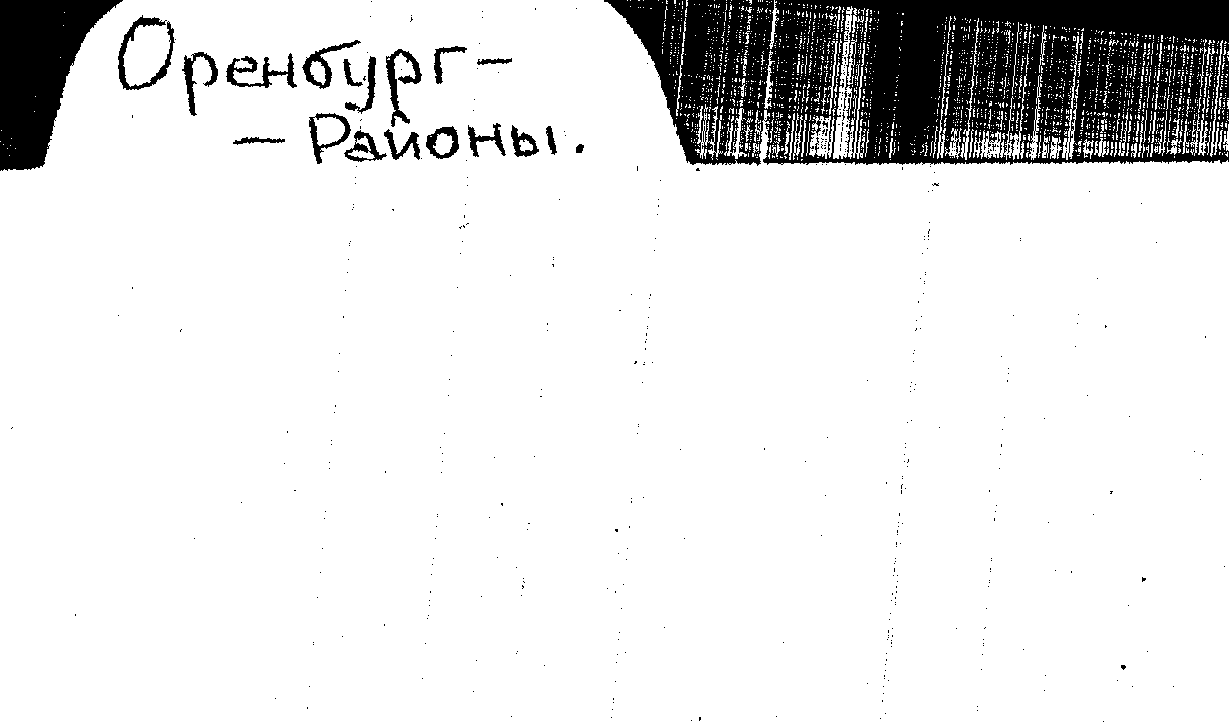 Оренбург –
– Районы.